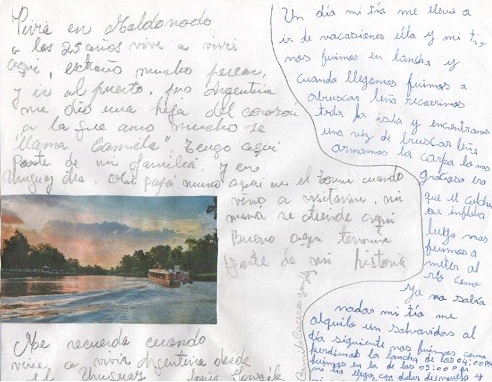 Viví en Maldonado
a los 25 años vive a vivir
aquí, extraño mucho pescar,
y ir al puerto, pero Argentina
me dio una hija del corazon
a la que amo mucho se
llama Camela" Tengo aquí
parte de mi familia y en
Uruguay otra. Mi papá murio aquí
cuando
vino a visitarme, mi
mama se atiende aquí
Bueno aqui termina
parte de mi historia
Me recuerda cuando
vine a vivir Argentina desde
Uruguay
Un día mi tía me llevo a
ir de vacasiones ella y mi tio,
nos fuimos en lancha y
cuando llegamos fuimos a
abruscar leña recorrimos
toda la isla y encontramos
una vez de bruscar leña
armamos la carpa lo mas
gracioso era
que el colchon
se inflaba
luego nos
fuimos a
meter al
rio como
yo no sabia
nadar mi tía me
alquilo un salvavidas al
día siguiente nos fuimos como
perdimos la lancha de las 04:00 PM
fuimos en la de las 05:00 PM